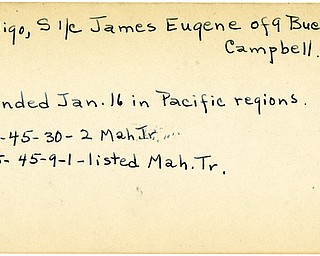 igo, S 1/c James Eugene of 9 Bue
Campbell.
nded Jan. 16 in Pacific regions.
-45-30-2 Mah. Tr.
5-45-9-1-listed Mah. Tr.